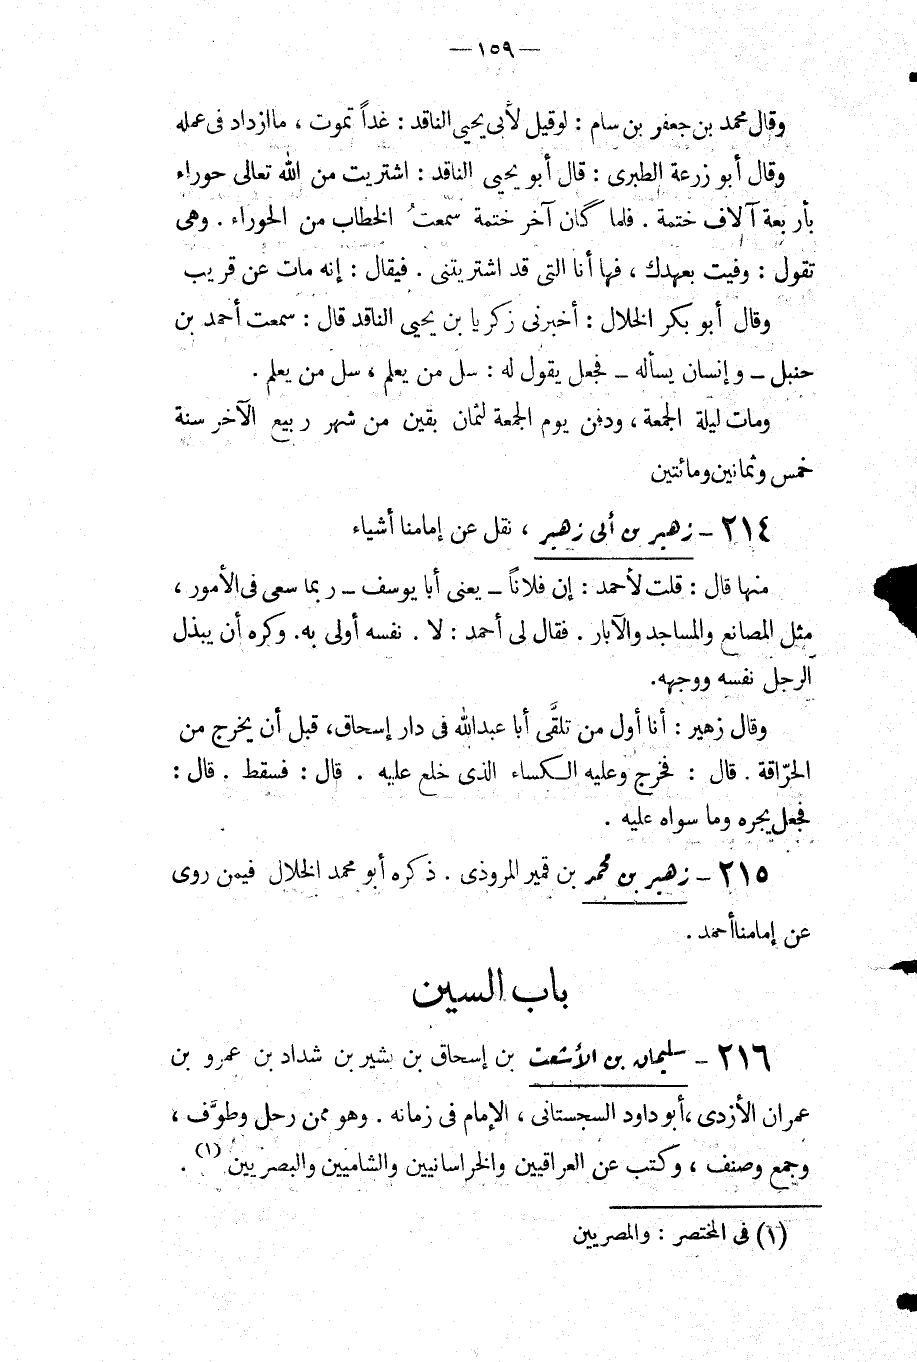 — ١٥٩ —
وقال محمد بن جعفر بن سام : لوقيل لأبى يحيى الناقد : غداً تموت ، ماازداد فى عمله
وقال أبو زرعة الطبرى : قال أبو يحيى الناقد : اشتريت من الله تعالى حوراء
بأربعة آلاف ختمة . فلما كان آخر ختمة سمعتُ الخطاب من الحوراء . وهى
تقول : وفيت بعهدك ، فها أنا التى قد اشتريتنى . فيقال : إنه مات عن قريب
وقال أبو بكر الخلال : أخبرنى زكريا بن يحيى الناقد قال : سمعت أحمد بن
حنبل ــ وإنسان يسأله ــ فجعل يقول له : سل من يعلم ، سل من يعلم .
ومات ليلة الجمعة ، ودفن يوم الجمعة لثمان بقين من شهر ربيع الآخر سنة
خمس وثمانين ومائتين
٢١٤ ــ زهير بن أبى زهير ، نقل عن إمامنا أشياء
منها قال : قلت لأحمد : إن فلاناً ــ يعنى أبا يوسف ــ ربما سعى فى الأمور ،
مثل المصانع والمساجد والآبار . فقال لى أحمد : لا . نفسه أولى به. وكره أن يبذل
الرجل نفسه ووجهه.
وقال زهير : أنا أول من تلقَّى أبا عبدالله فى دار إسحاق، قبل أن يخرج من
الحرّاقة . قال : فخرج وعليه الكساء الذى خلع عليه . قال : فسقط . قال :
فجعل يجره وما سواه عليه .
٢١٥ ــ زهير بن محمد بن قمير المروذى . ذكره أبو محمد الخلال فيمن روى
عن إمامنا أحمد .
باب السين
٢١٦ ــ سليمان بن الأشعث بن إسحاق بن بشير بن شداد بن عمرو بن
عمران الأزدى ،أبو داود السجستانى ، الإمام فى زمانه . وهو ممن رحل وطوَّف ،
وجمع وصنف ، وكتب عن العراقيين والخراسانيين والشاميين والبصريين (١) .
(١) فى المختصر : والمصريين